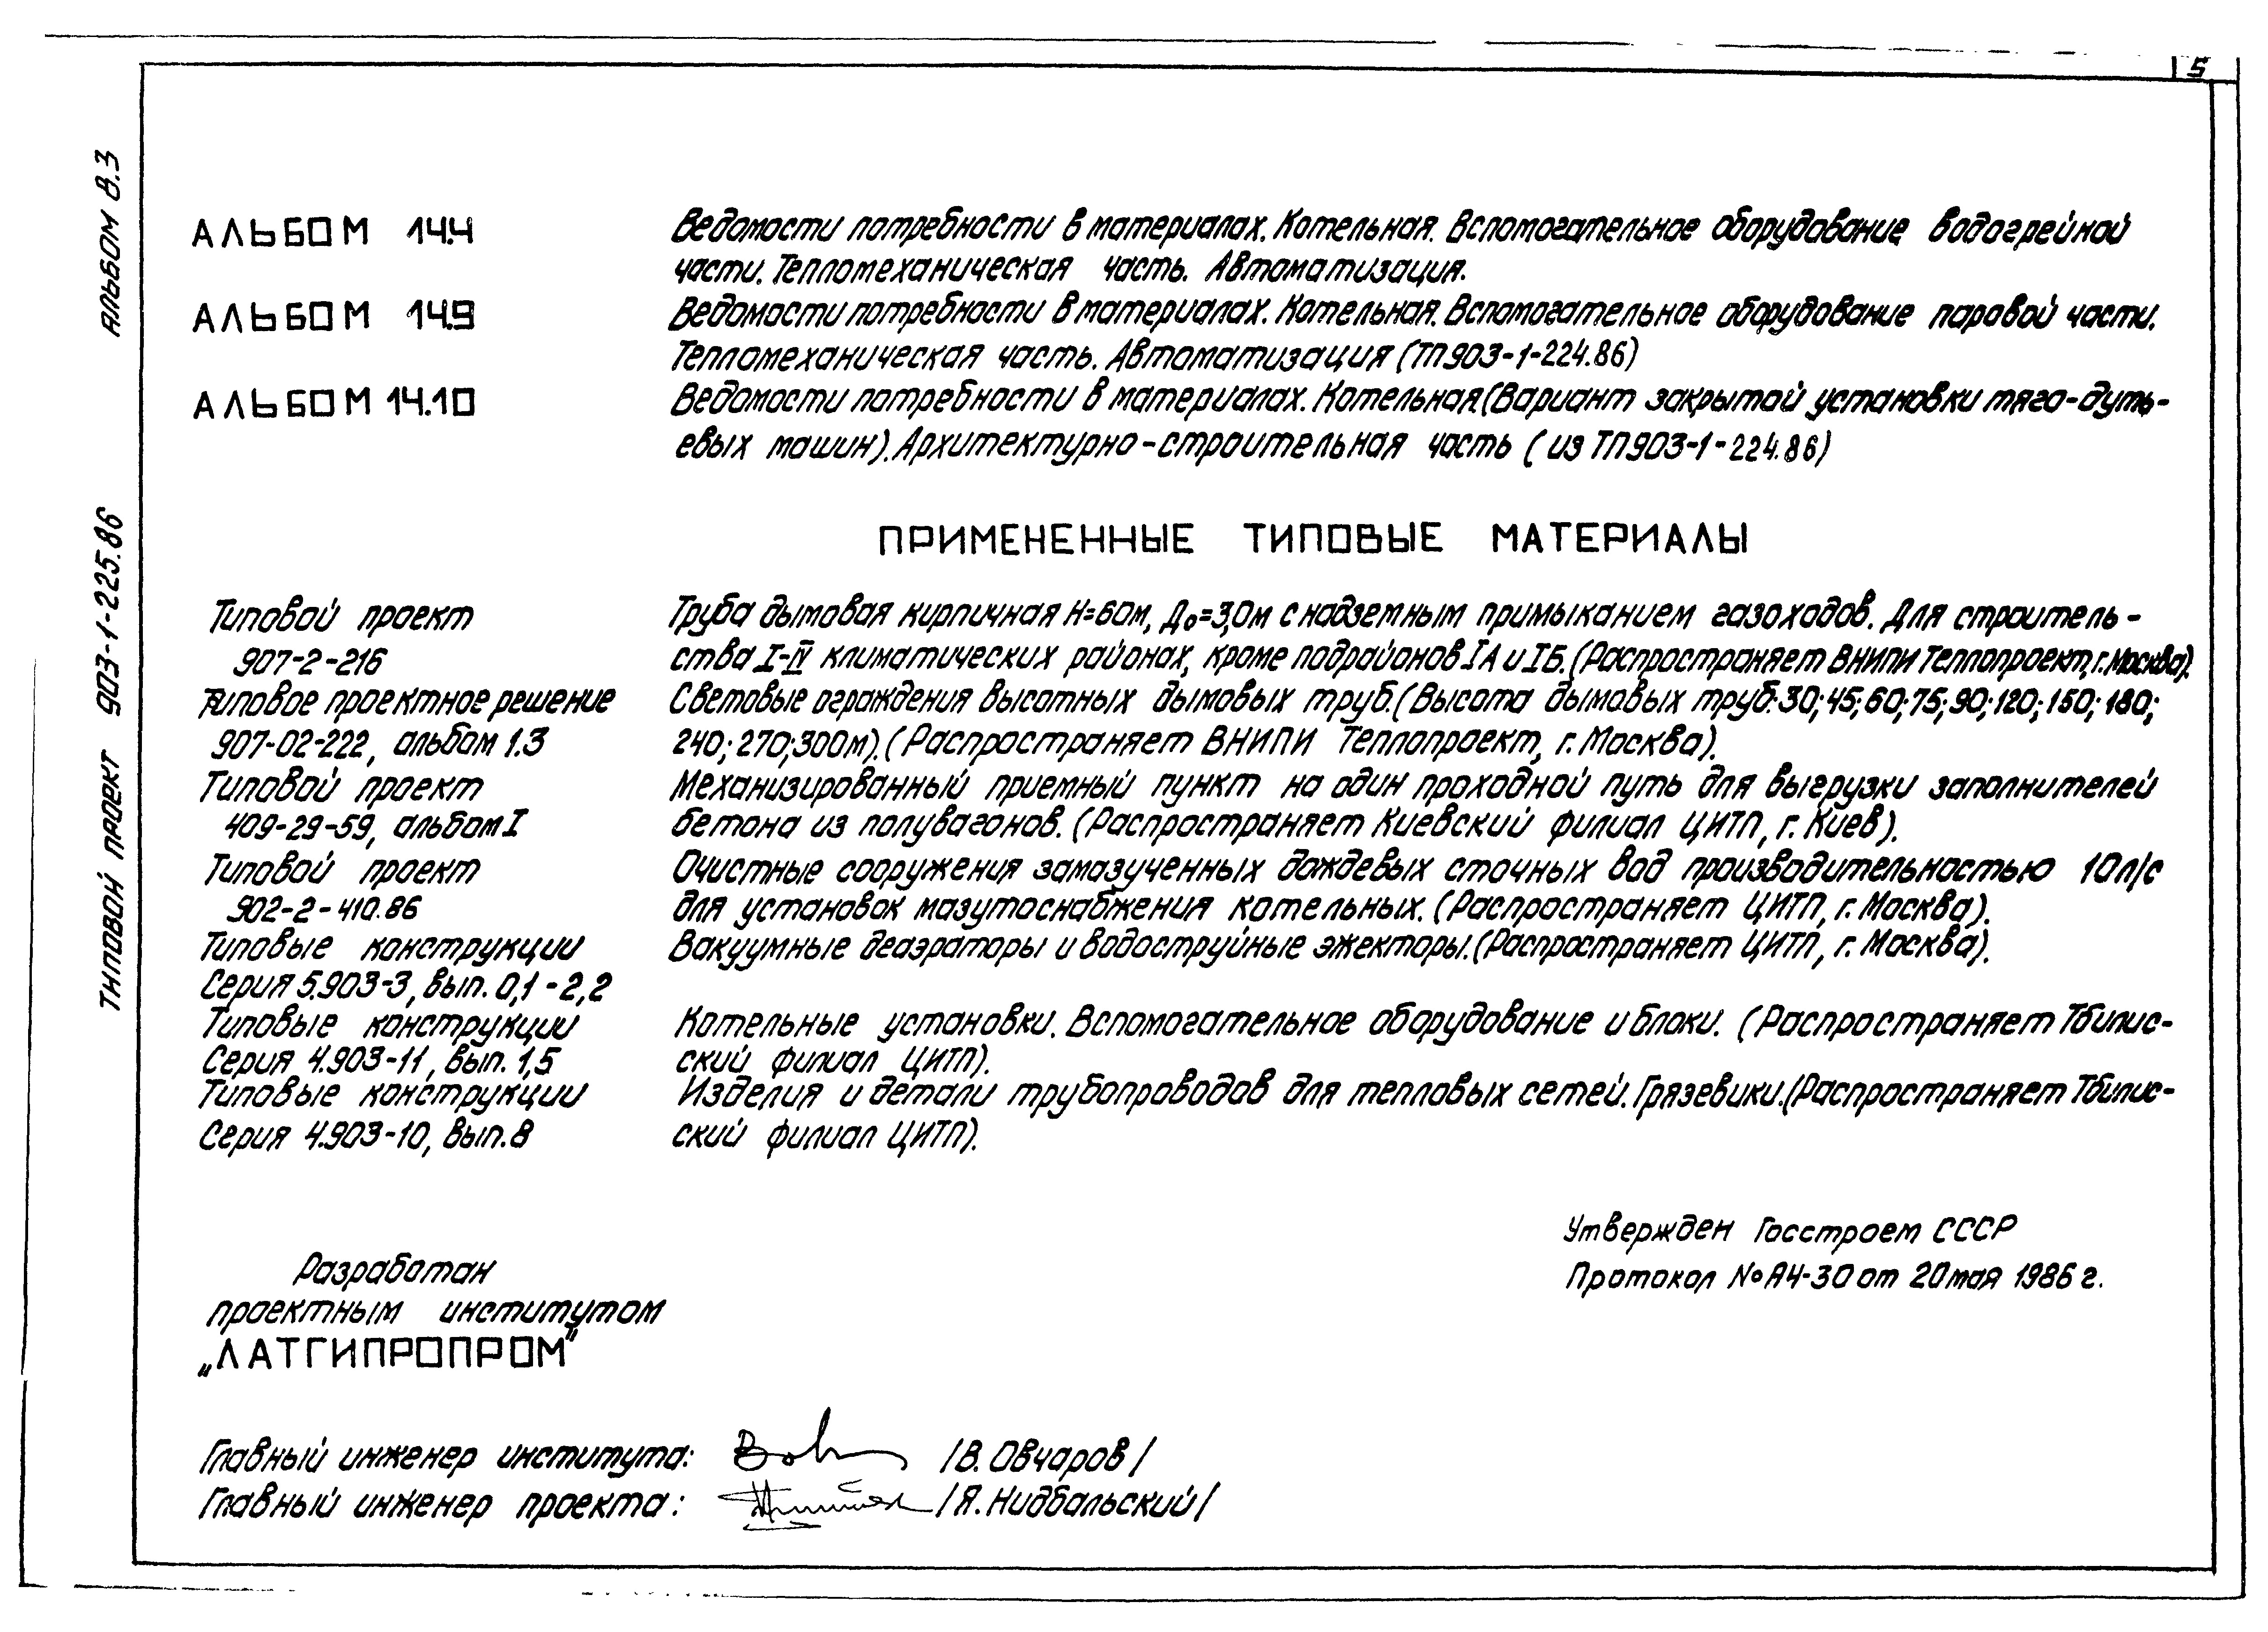 5
АЛЬБОМ 8.3
ТИПОВОЙ ПРОЕКТ 903-1-225.86
АЛЬБОМ 14.4 Ведомости потребности в материалах. Котельная. Вспомогательное оборудование водогрейной
части. Тепломеханическая часть. Автоматизация.
АЛЬБОМ 14.9 Ведомости потребности в материалах. Котельная. Вспомогательное оборудование паровой части.
Тепломеханическая часть. Автоматизация (ТП903-1-224.86)
АЛЬБОМ 14.10 Ведомости потребности в материалах. Котельная.(Вариант закрытой установки тяго-дуть-
евых машин). Архитектурно-строительная часть (из ТП903-1-224.86)
ПРИМЕНЕННЫЕ ТИПОВЫЕ МАТЕРИАЛЫ
Типовой проект Труба дымовая кирпичная Н=60м, До=3,0м с надземным примыканием газоходов. Для строитель-
907-2-216 ства I-IV климатических районах, кроме подрайонов IА и IБ. (Распространяет ВНИПИ Теплопроект, г. Москва).
Типовое проектное решение Световые ограждения высотных дымовых труб. (Высота дымовых труб: 30; 45; 60; 75; 90; 120; 150; 180;
907-02-222, альбом 1.3 240; 270; 300м). (Распространяет ВНИПИ Теплопроект, г. Москва).
Типовой проект Механизированный приемный пункт на один проходной путь для выгрузки заполнителей
409-29-59, альбом I бетона из полувагонов. (Распространяет Киевский филиал ЦИТП, г. Киев).
Типовой проект Очистные сооружения замазученных дождевых сточных вод производительностью 10л/с
902-2-410.86 для установок мазутоснабжения котельных. (Распространяет ЦИТП, г. Москва).
Типовые конструкции Вакуумные деаэраторы и водоструйные эжекторы. (Распространяет ЦИТП, г. Москва).
Серия 5.903-3, вып. 0,1-2,2
Типовые конструкции Котельные установки. Вспомогательное оборудование и блоки. (Распространяет Тбилис-
Серия 4.903-11, вып. 1,5 ский филиал ЦИТП).
Типовые конструкции Изделия и детали трубопроводов для тепловых сетей. Грязевики. (Распространяет Тбилис-
Серия 4.903-10, вып. 8 ский филиал ЦИТП).
Утвержден Госстроем СССР
Протокол № АЧ-30 от 20 мая 1986 г.
Разработан
проектным институтом
„ЛАТГИПРОПРОМ"
Главный инженер института: /В. Овчаров/
Главный инженер проекта: /Я. Нидбальский/